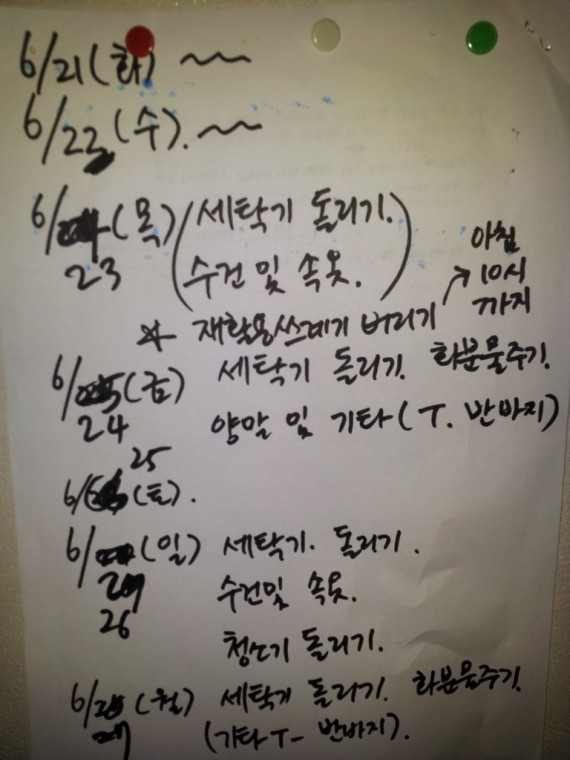 6/21(화) ~~
6/22(수). ~~
6/ (목) (세탁기 돌리기.
23 수건 및 속옷.)
아침
10시
까지
* 재활용쓰레기 버리기 →
6/25(금) 세탁기 돌리기. 화분물주기.
24 양말 및 기타(T. 반바지)
25
6/ (토).
6/ (일) 세탁기. 돌리기.
수건및 속옷.
26
청소기 돌리기.
6/ (월) 세탁기 돌리기. 화분물주기.
(기타 T- 반바지).